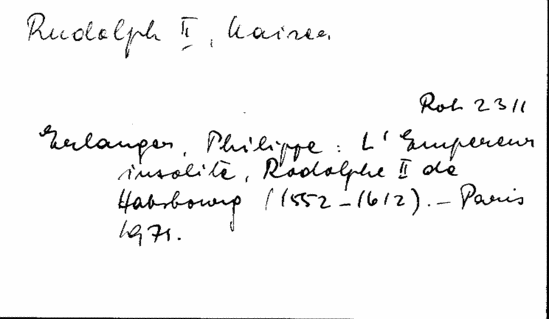 Rudolph II, Kaiser
Rok 2311
Erlanger, Philippe: L'Empereur
insolite, Rodolphe II de
Habsbourg (1552-1612). - Paris
1971.